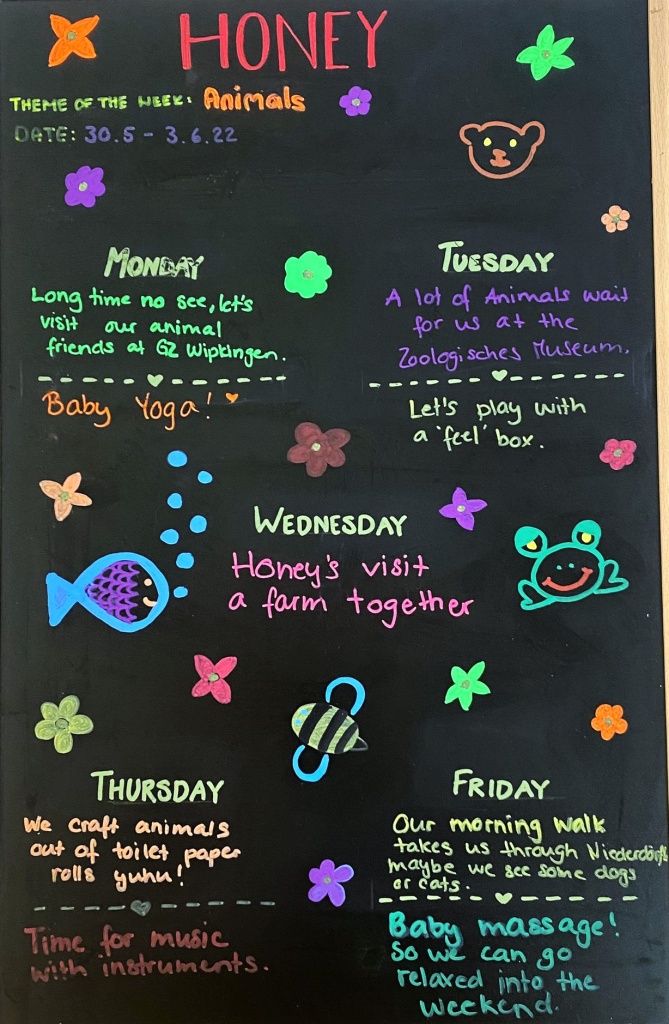 HONEY
THEME OF THE WEEK: Animals
DATE: 30.5 - 3.6.22
MONDAY
Long time no see, let's
visit our animal
friends at GZ Wipkingen.
Baby Yoga!
TUESDAY
A lot of Animals wait
for us at the
Zoologisches Museum.
Let's play with
a 'feel' box.
WEDNESDAY
Honey's visit
a farm together
THURSDAY
We craft animals
out of toilet paper
rolls yuhu!
Time for music
with instruments.
FRIDAY
Our morning walk
takes us through Niederdörfli
maybe we see some dogs
or cats.
Baby massage!
So we can go
relaxed into the
weekend.